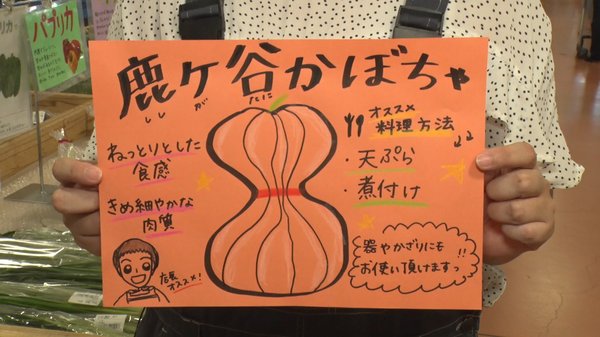 パプリカ
鹿ヶ谷かぼちゃ
しし が たに
ねっとりとした
食感
きめ細やかな
肉質
店長
オススメ!
オススメ
料理方法
・天ぷら
・煮付け
器やかざりにも
お使い頂けますっ!!